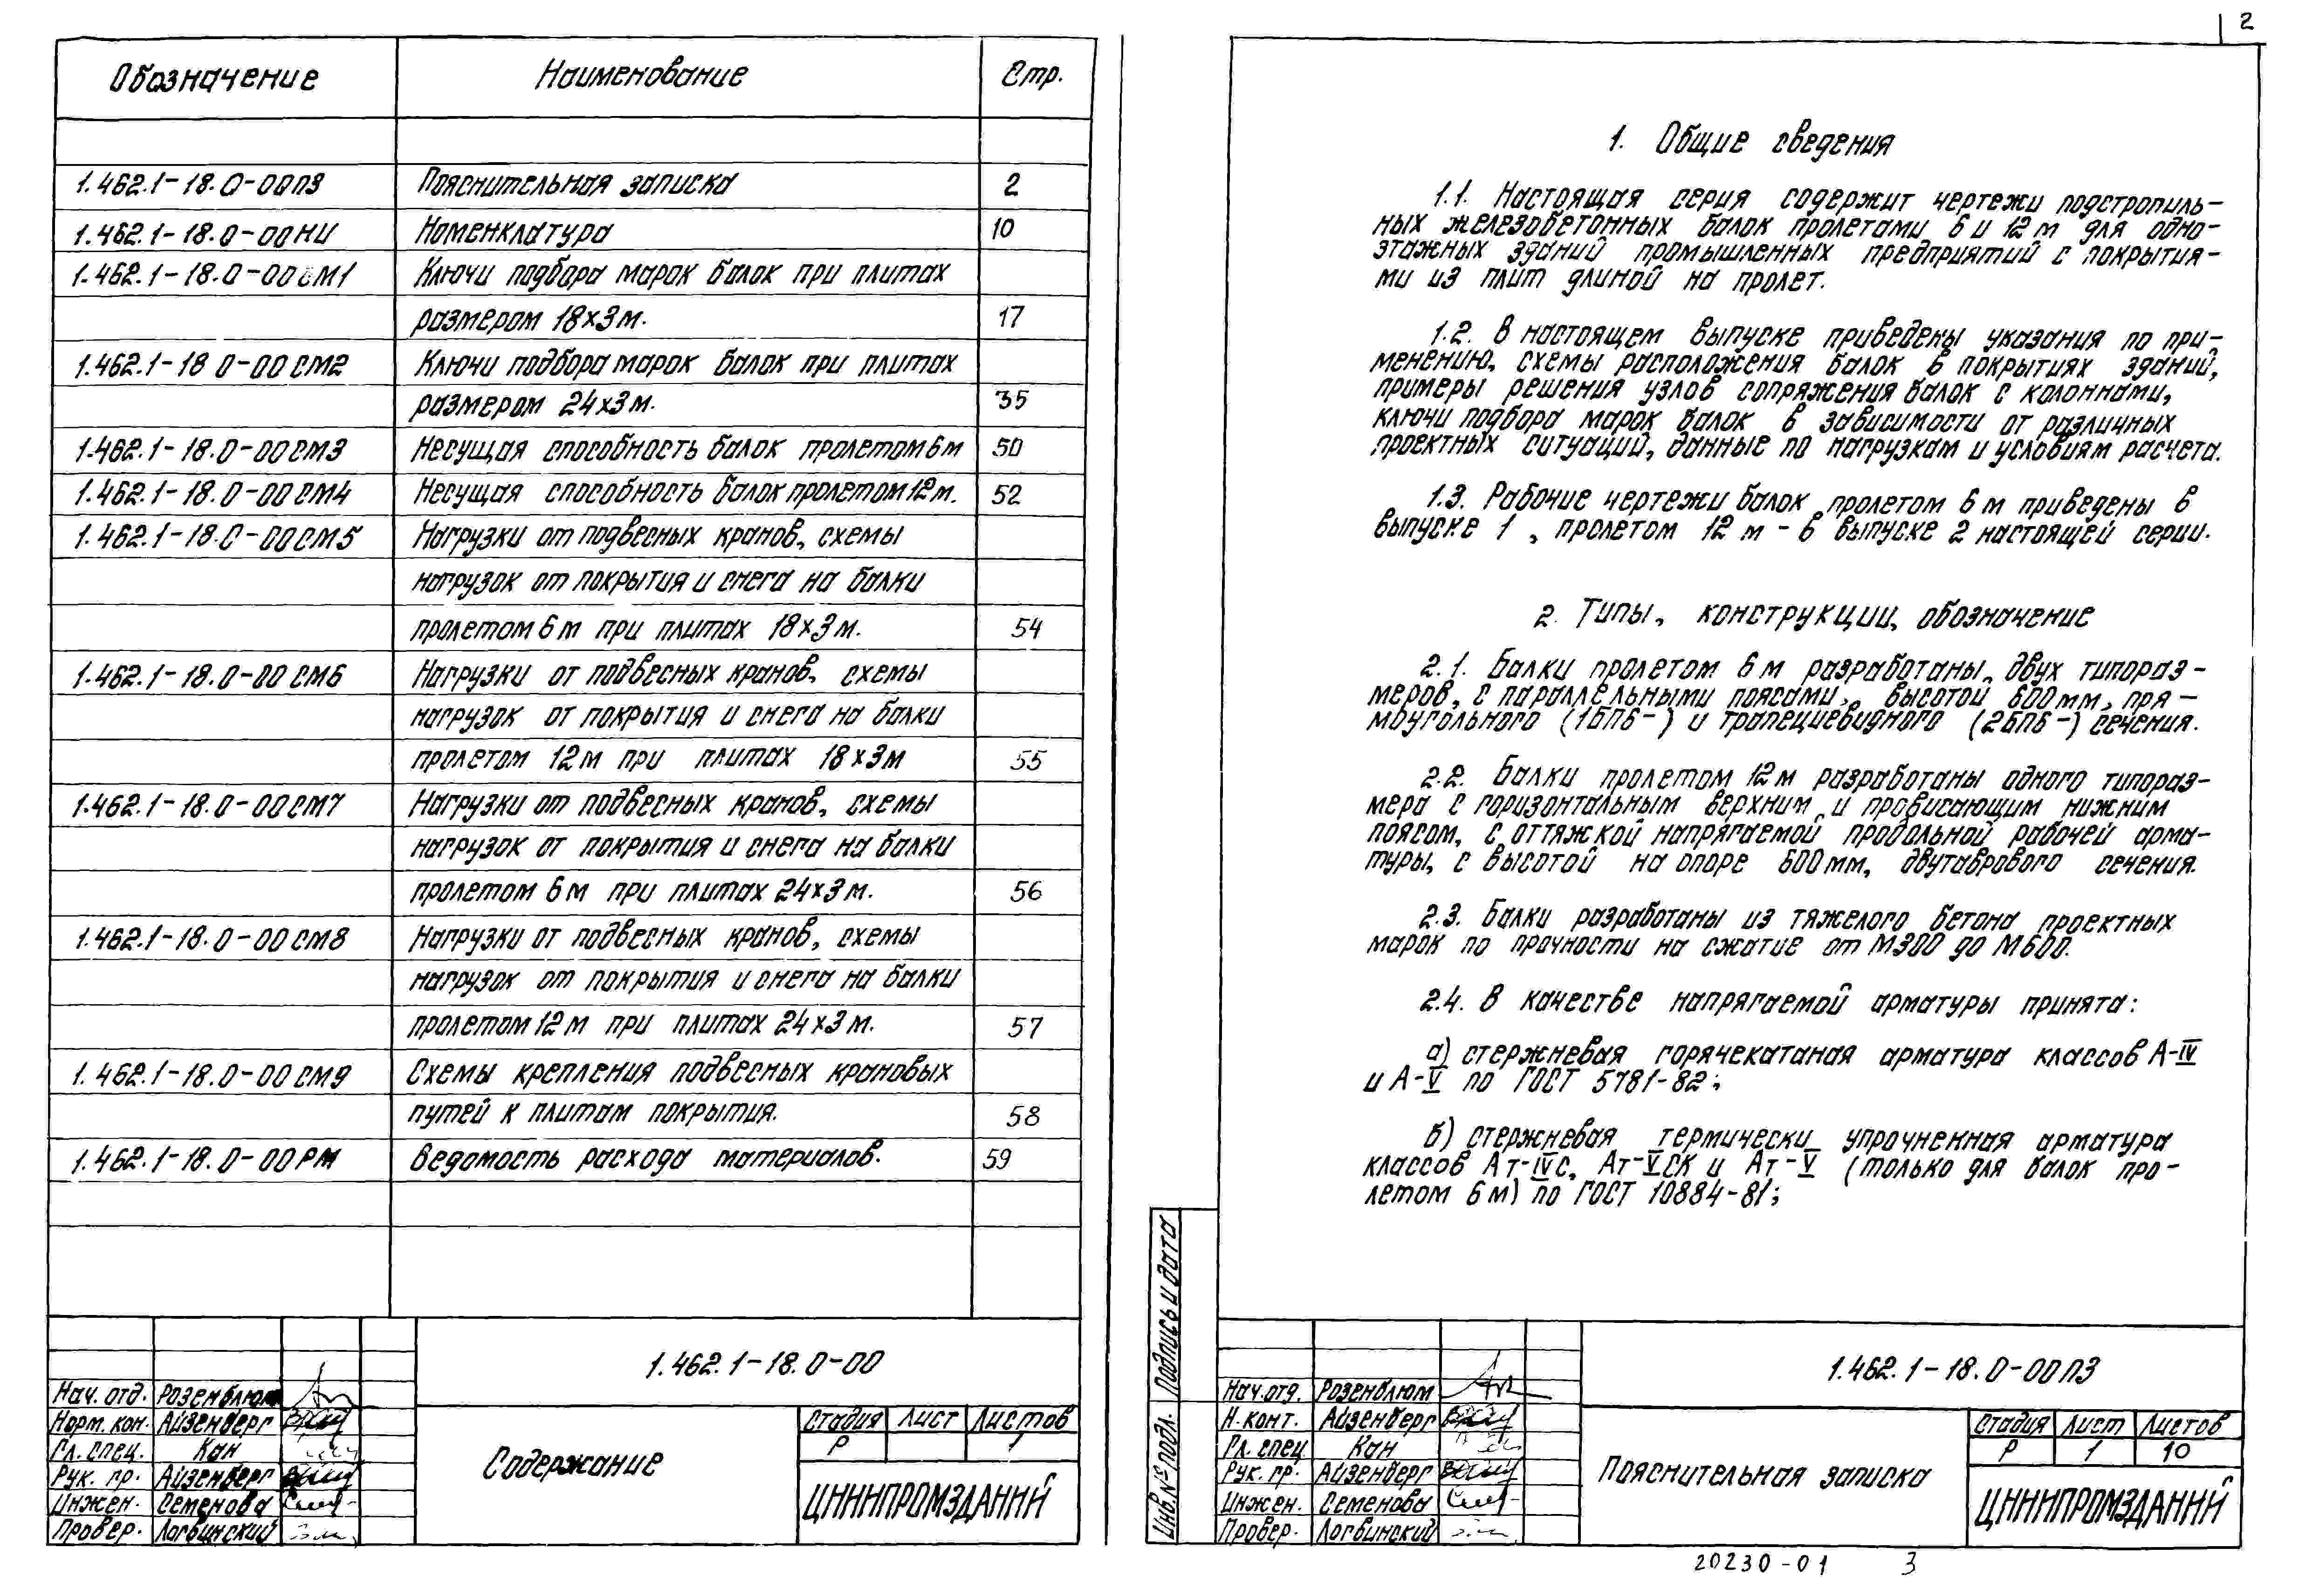 2
Обозначение Наименование Стр.
1.462.1-18.0-00ПЗ Пояснительная записка 2
1.462.1-18.0-00НИ Номенклатура 10
1.462.1-18.0-00СМ1 Ключи подбора марок балок при плитах
размером 18х3м. 17
1.462.1-18 0-00СМ2 Ключи подбора марок балок при плитах
размером 24х3м. 35
1.462.1-18.0-00СМ3 Несущая способность балок пролетом 6м 50
1.462.1-18.0-00СМ4 Несущая способность балок пролетом 12м. 52
1.462.1-18.0-00СМ5 Нагрузки от подвесных кранов, схемы
нагрузок от покрытия и снега на балки
пролетом 6м при плитах 18х3м. 54
1.462.1-18.0-00СМ6 Нагрузки от подвесных кранов, схемы
нагрузок от покрытия и снега на балки
пролетом 12м при плитах 18х3м 55
1.462.1-18.0-00СМ7 Нагрузки от подвесных кранов, схемы
нагрузок от покрытия и снега на балки
пролетом 6м при плитах 24х3м. 56
1.462.1-18.0-00СМ8 Нагрузки от подвесных кранов, схемы
нагрузок от покрытия и снега на балки
пролетом 12м при плитах 24х3м. 57
1.462.1-18.0-00СМ9 Схемы крепления подвесных крановых
путей к плитам покрытия. 58
1.462.1-18.0-00РМ Ведомость расхода материалов. 59
1.462.1-18.0-00
Нач. отд. Розенблюм
Норм. кон. Айзенберг
Гл. спец. Кан
Рук. гр. Айзенберг
Инжен. Семенова
Провер. Логвинский
Содержание
Стадия Лист Листов
Р 1
ЦНИИПРОМЗДАНИЙ
1. Общие сведения
1.1. Настоящая серия содержит чертежи подстропиль-
ных железобетонных балок пролетами 6 и 12м для одно-
этажных зданий промышленных предприятий с покрытия-
ми из плит длиной на пролет.
1.2. В настоящем выпуске приведены указания по при-
менению, схемы расположения балок в покрытиях зданий,
примеры решения узлов сопряжения балок с колоннами,
ключи подбора марок балок в зависимости от различных
проектных ситуаций, данные по нагрузкам и условиям расчета.
1.3. Рабочие чертежи балок пролетом 6м приведены в
выпуске 1, пролетом 12м - в выпуске 2 настоящей серии.
2. Типы, конструкции, обозначение
2.1. Балки пролетом 6м разработаны двух типораз-
меров, с параллельными поясами, высотой 600мм, пря-
моугольного (1БП6-) и трапециевидного (2БП6-) сечения.
2.2. Балки пролетом 12м разработаны одного типораз-
мера с горизонтальным верхним и провисающим нижним
поясом, с оттяжкой напрягаемой продольной рабочей арма-
туры, с высотой на опоре 600мм, двутаврового сечения.
2.3. Балки разработаны из тяжелого бетона проектных
марок по прочности на сжатие от М300 до М600.
2.4. В качестве напрягаемой арматуры принята:
а) стержневая горячекатаная арматура классов А-IV
и А-V по ГОСТ 5781-82;
б) стержневая термически упрочненная арматура
классов Ат-IVС, Ат-VСК и Ат-V (только для балок про-
летом 6м) по ГОСТ 10884-81;
Подпись и дата
Инв.№ подл.
1.462.1-18.0-00ПЗ
Нач.отд. Розенблюм
Н.конт. Айзенберг
Гл. спец Кан
Рук. гр. Айзенберг
Инжен. Семенова
Провер. Логвинский
Пояснительная записка
Стадия Лист Листов
Р 1 10
ЦНИИПРОМЗДАНИЙ
20230-01 3